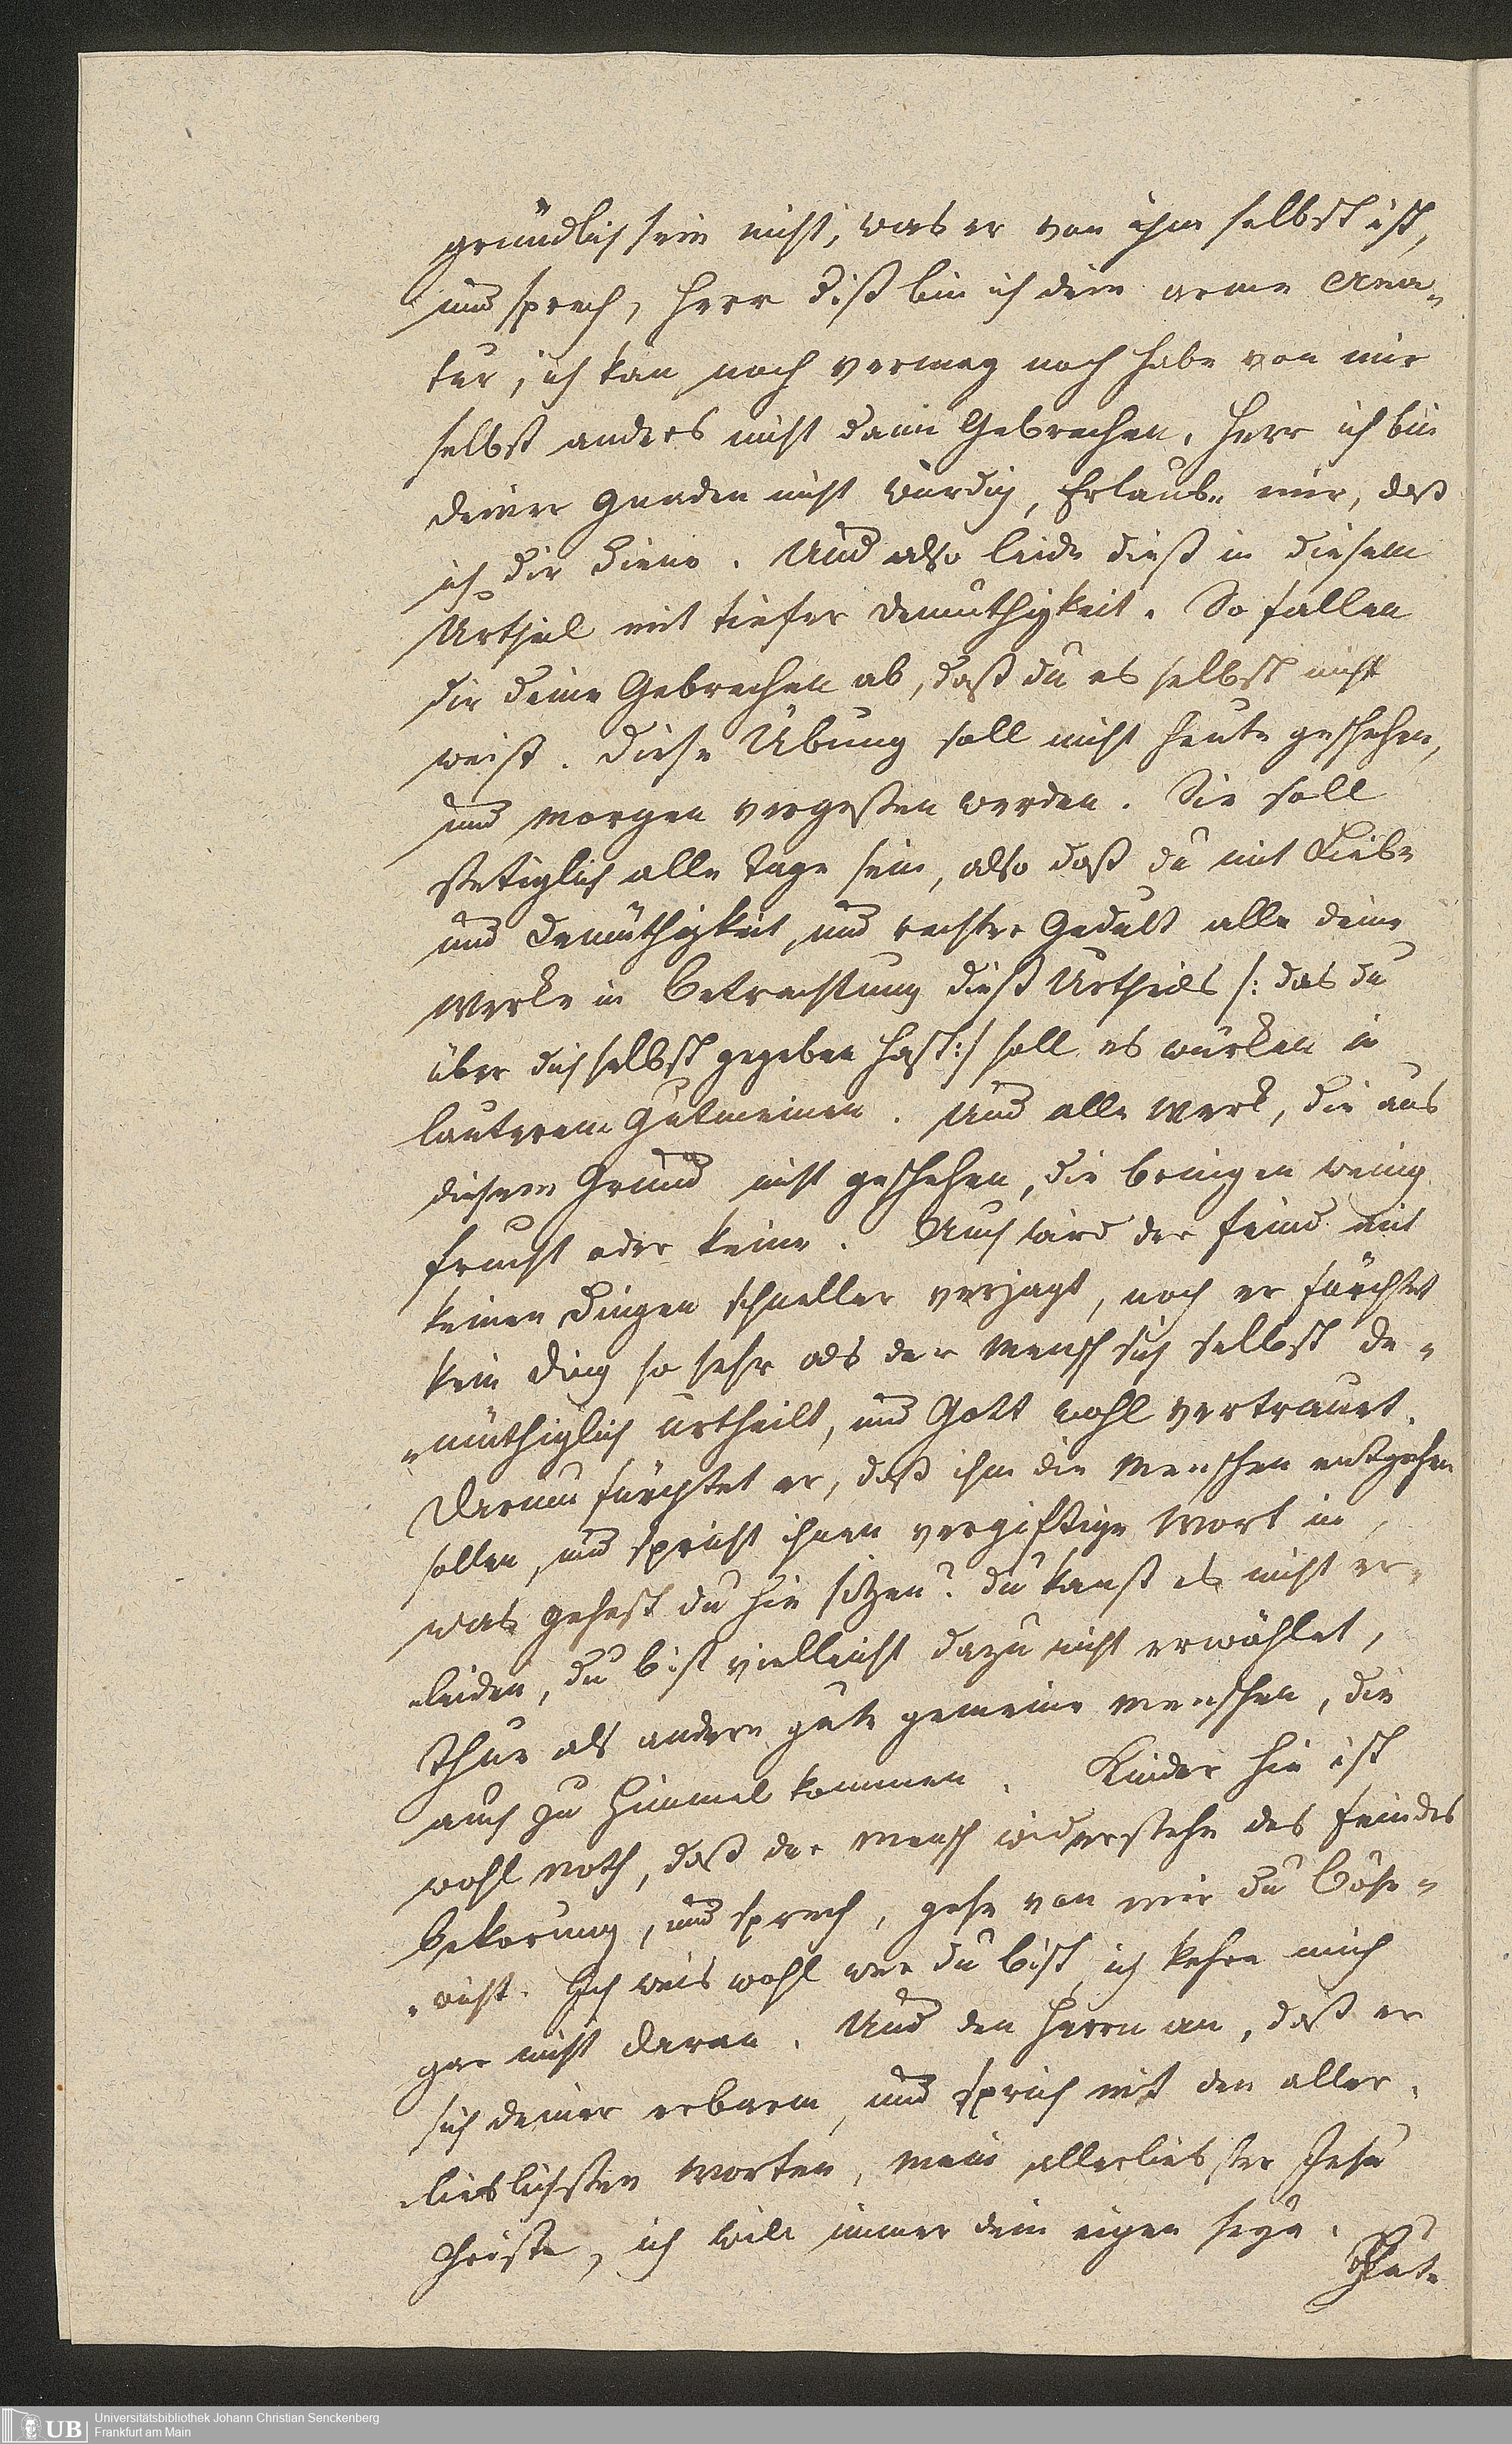 gründlich sein nicht, was er von ihm selbst ist,
und sprech, Herr diß bin ich dein arme Crea-
tur, ich kan noch vermag noch habe von mir
selbst anders nicht dann Gebrechen, Herr ich bin
deiner Gnaden nicht würdig, Erlaube mir, daß
ich dir diene. Und also leide dieß in diesem
Urtheil mit tiefer Demuthigkeit. So fallen
dir deine Gebrechen ab, daß du es selbst nicht
weist. Diese Übung soll nicht heute geschehen,
und morgen vergessen werden. Sie soll
stetiglich alle Tage sein, also daß du mit Liebe
und Demüthigkeit, und rechter Gedult alle deine
Werke in Betrachtung dieß Urtheils /: das du
über dich selbst gegeben hast :/ soll es würken in
lauterem Gutmeinen. Und alle Werk, die aus
diesem Grund nicht geschehen, die bringen wenig
frucht oder keine. Auch wird der Feind mit
keinen Dingen schneller verjagt, noch er fürchtet
kein Ding so sehr als der Mensch sich selbst de-
müthiglich urtheilt, und Gott wohl vertrauet.
Darum fürchtet er, daß ihm die Menschen entgehen
sollen, und spricht ihnen vergiftige Wort in,
was gehest du hie sitzen? du kanst es nicht er-
leiden, du bist vielleicht dazu nicht erwählet,
Thue als andere gute gemeine Menschen, die
auch zu Himmel kommen. Kinder hie ist
wohl noth, daß der Mensch widerstehe des Feindes
Bekorung, und sprech, gehe von mir du Böse-
wicht. Ich weis wohl wer du bist, ich kehre mich
gar nicht daran. Und den Herrn an, daß er
sich deiner erbarm, und sprich mit den aller-
lieblichsten Worten, mein allerliebster Jesu
Christe, ich will immer dein eigen seyn.
Universitätsbibliothek Johann Christian Senckenberg
Frankfurt am Main
UB